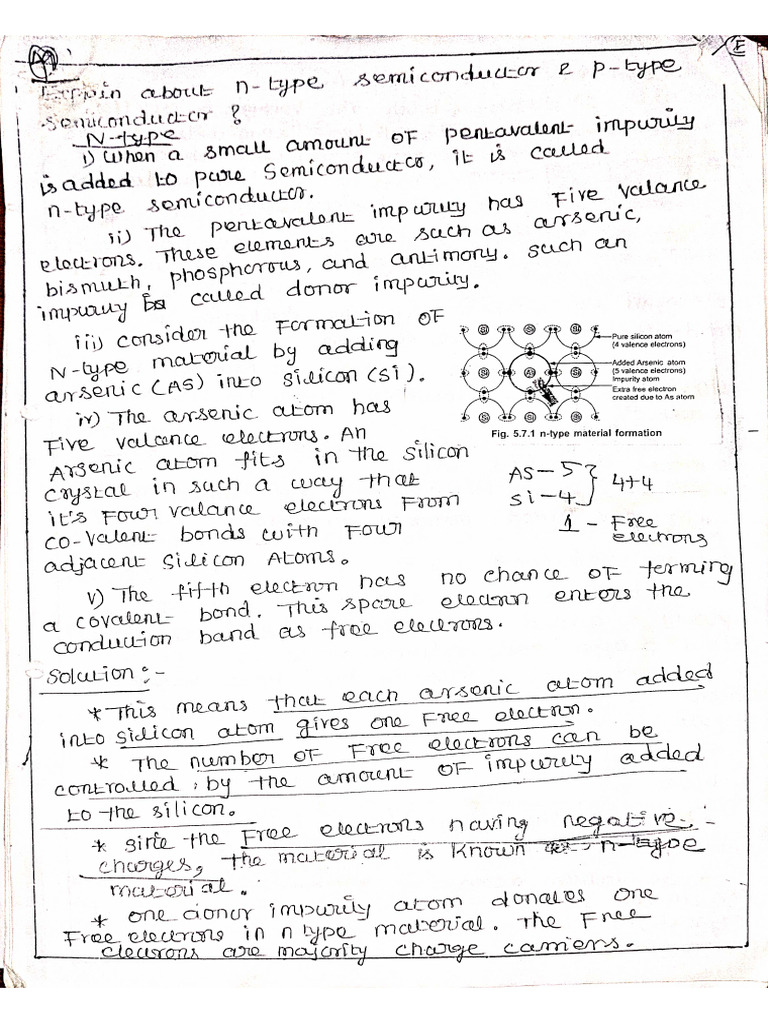 E
Explain about n-type semiconductor & p-type
semiconductor ?
N-type
i) when a small amount of pentavalent impurity
is added to pure semiconductor, it is called
n-type semiconductor.
ii) The pentavalent impurity has Five valance
electrons. These elements are such as arsenic,
bismuth, phosphorous, and antimony. such an
impurity is called donor impurity.
iii) consider the Formation OF
N-type material by adding
arsenic (AS) into silicon (si).
iv) The arsenic atom has
Five valance electrons. An
Arsenic atom fits in the silicon
crystal in such a way that
it's Four valance electrons From
co-valent bonds with Four
adjacent silicon Atoms.
Si Si Si
Si As Si
Si Si Si
Pure silicon atom
(4 valence electrons)
Added Arsenic atom
(5 valence electrons)
Impurity atom
Extra free electron
created due to As atom
Fig. 5.7.1 n-type material formation
AS - 5 } 4+4
si - 4
1 - Free
electrons
v) The fifth electron has no chance of ferming
a covalent bond. This spare electron enters the
conduction band as free electrons.
solution :-
* This means that each arsenic atom added
into silicon atom gives one Free electron.
* The number of Free electrons can be
controlled by the amount of impurity added
to the silicon.
* since the Free electrons having negative
charges, the material is known as n-type
material.
* one donor impurity atom donates one
Free electrons in n type material. The Free
electrons are majority charge carriers.